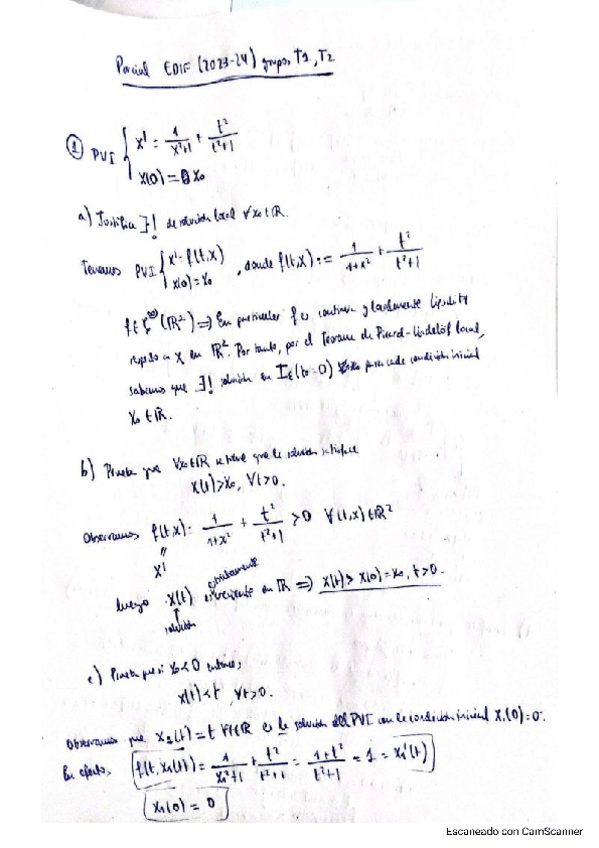 Parcial EDIF (2023-24) grupos T1, T2
① PVI { x' = 1/(x²+1) + t²/(t²+1)
x(0) = x₀
a) Justifica ∃! de solución local ∀x₀∈ℝ.
Tenemos PVI { x' = f(t,x) , donde f(t,x) := 1/(1+x²) + t²/(t²+1)
x(0) = x₀
(ℝ²) ⇒ En particular f es continua y localmente lipschitz
respecto a x en ℝ². Por tanto, por el Teorema de Picard-Lindelöf local,
sabemos que ∃! solución en (t₀=0) para cada condición inicial
x₀ ∈ ℝ.
b) Prueba que ∀x₀∈ℝ se tiene que la solución satisface
x(t) > x₀, ∀t>0.
Observamos f(t,x) = 1/(1+x²) + t²/(t²+1) > 0 ∀(t,x)∈ℝ²
"
x'
estrictamente
luego x(t) creciente en ℝ ⇒ x(t) > x(0) = x₀, t>0.
↑
solución
c) Prueba que si x₀<0 entonces
x(t) < t, ∀t>0.
Observamos que x₁(t) = t ∀t∈ℝ es la solución del PVI con la condición inicial x₁(0)=0.
En efecto, f(t,x₁(t)) = 1/(x₁²+1) + t²/(t²+1) = (1+t²)/(t²+1) = 1 = x₁'(t)
x₁(0) = 0
Escaneado con CamScanner